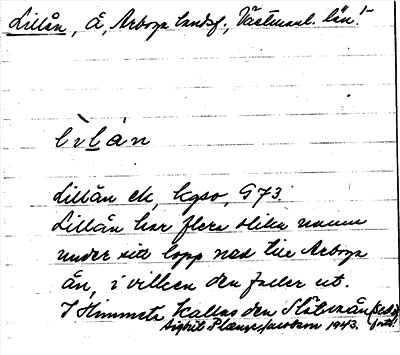 Lillån, å, Arboga landsf., Västmanl. län.
lìlån
Lillån ek, kgso, G73.
Lillån har flera olika namn
under sitt lopp ned till Arboga
ån, i vilken den faller ut.
I Himmeta kallas den
Sigrid 1943.